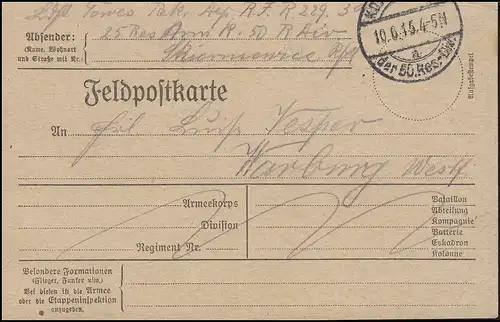 Absender:
(Name, Wohnort
und Straße mit Nr.)
25 Res Arm K. 50 R Div
Skierniewice
10.6.15.4-5N
a
der 50.Res-Div.
Aufgabestempel
Feldpostkarte
An Frl Luise Vesper
Warburg Westf
Armeekorps
Division
Regiment Nr.
Bataillon
Abteilung
Kompagnie
Batterie
Eskadron
Kolonne
Besondere Formationen
(Flieger, Funker usw.)
Bei diesen ist die Armee
oder die Etappeninspektion
anzugeben.